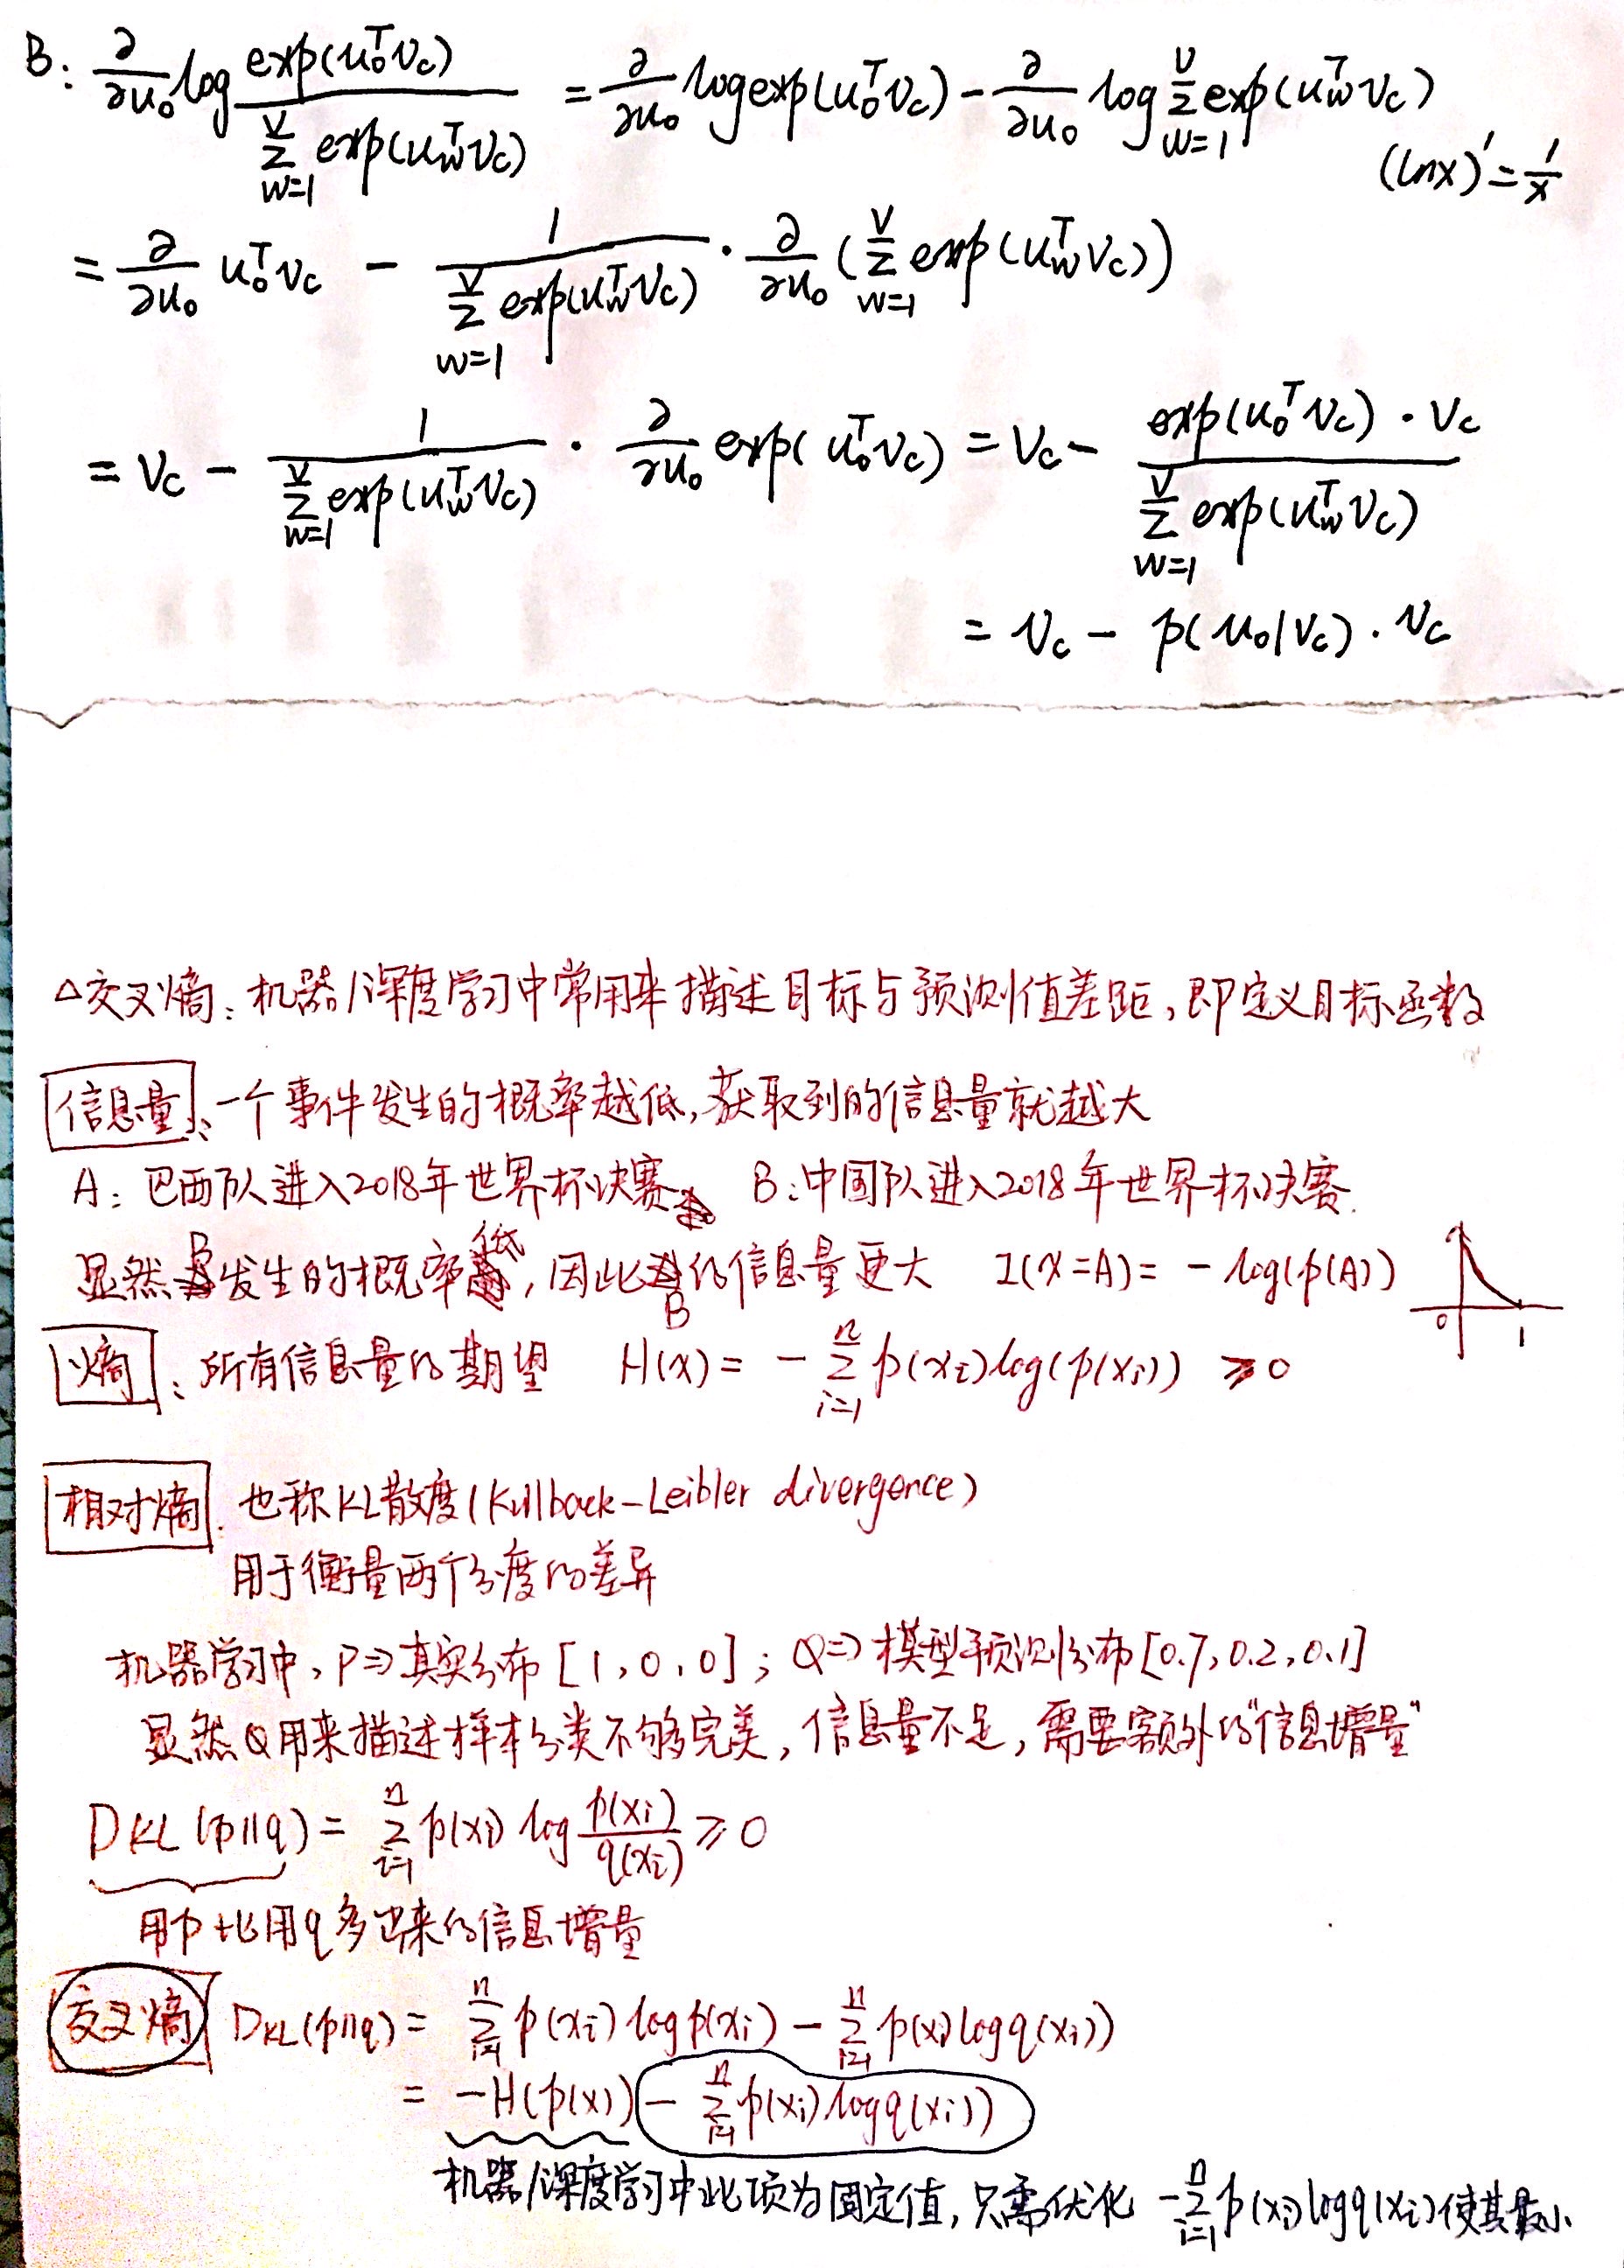 B: ∂/∂u₀ log exp(u₀ᵀv_c) / Σ_{w=1}^{V} exp(u_wᵀv_c) = ∂/∂u₀ log exp(u₀ᵀv_c) − ∂/∂u₀ log Σ_{w=1}^{V} exp(u_wᵀv_c)
(lnx)′ = 1/x
= ∂/∂u₀ u₀ᵀv_c − 1 / Σ_{w=1}^{V} exp(u_wᵀv_c) · ∂/∂u₀ (Σ_{w=1}^{V} exp(u_wᵀv_c))
= v_c − 1 / Σ_{w=1}^{V} exp(u_wᵀv_c) · ∂/∂u₀ exp(u₀ᵀv_c) = v_c − exp(u₀ᵀv_c)·v_c / Σ_{w=1}^{V} exp(u_wᵀv_c)
= v_c − p(u₀|v_c)·v_c
△交叉熵: 机器/深度学习中常用来描述目标与预测值差距, 即定义目标函数
信息量: 一个事件发生的概率越低, 获取到的信息量就越大
A: 巴西队进入2018年世界杯决赛 B: 中国队进入2018年世界杯决赛.
显然B发生的概率低, 因此B的信息量更大 I(x=A) = −log(p(A))
0 1
熵: 所有信息量的期望 H(x) = −Σ_{i=1}^{n} p(xᵢ)log(p(xᵢ)) ≥ 0
相对熵: 也称KL散度(Kullback-Leibler divergence)
用于衡量两个分度的差异
机器学习中, P⇒真实分布 [1, 0, 0]; Q⇒模型预测分布[0.7, 0.2, 0.1]
显然Q用来描述样本分类不够完美, 信息量不足, 需要额外的"信息增量"
DKL(p||q) = Σ_{i=1}^{n} p(xᵢ) log p(xᵢ)/q(xᵢ) ≥ 0
用p比用q多出来的信息增量
交叉熵 DKL(p||q) = Σ_{i=1}^{n} p(xᵢ)log p(xᵢ) − Σ_{i=1}^{n} p(xᵢ)log q(xᵢ))
= −H(p(x)) − Σ_{i=1}^{n} p(xᵢ)log q(xᵢ))
机器/深度学习中此项为固定值, 只需优化 −Σ_{i=1}^{n} p(xᵢ)log q(xᵢ)使其最小